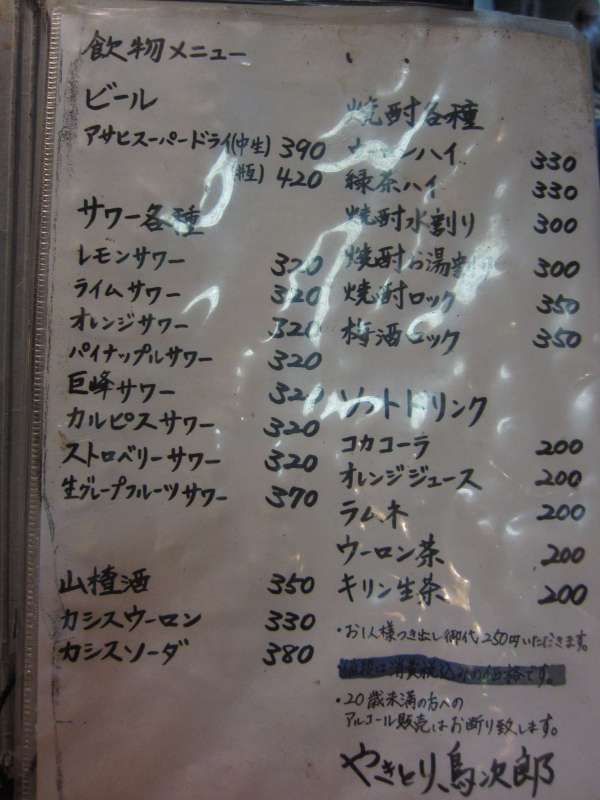 飲物メニュー
ビール
アサヒスーパードライ(中生) 390
(瓶) 420
サワー各種
レモンサワー 320
ライムサワー 320
オレンジサワー 320
パイナップルサワー 320
巨峰サワー 320
カルピスサワー 320
ストロベリーサワー 320
生グレープフルーツサワー 370
山楂酒 350
カシスウーロン 330
カシスソーダ 380
焼酎各種
ウーロンハイ 330
緑茶ハイ 330
焼酎水割り 300
焼酎お湯割り 300
焼酎ロック 350
梅酒ロック 350
ソフトドリンク
コカコーラ 200
オレンジジュース 200
ラムネ 200
ウーロン茶 200
キリン生茶 200
・お1人様つき出し御代250円いただきます。
は消費税込みの価格です。
・20歳未満の方への
アルコール販売はお断り致します。
やきとり、鳥次郎